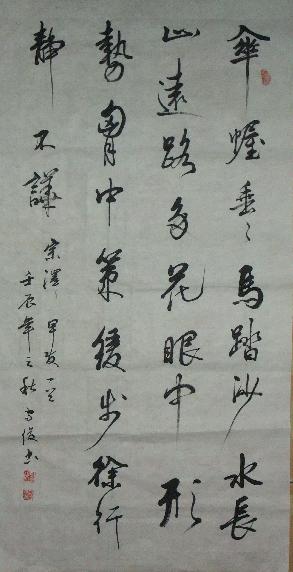 傘幄垂〻馬踏沙水長
山遠路多花眼中形
勢胷中策緩步徐行
靜不譁
宗澤早發一首
壬辰年之秋俊书